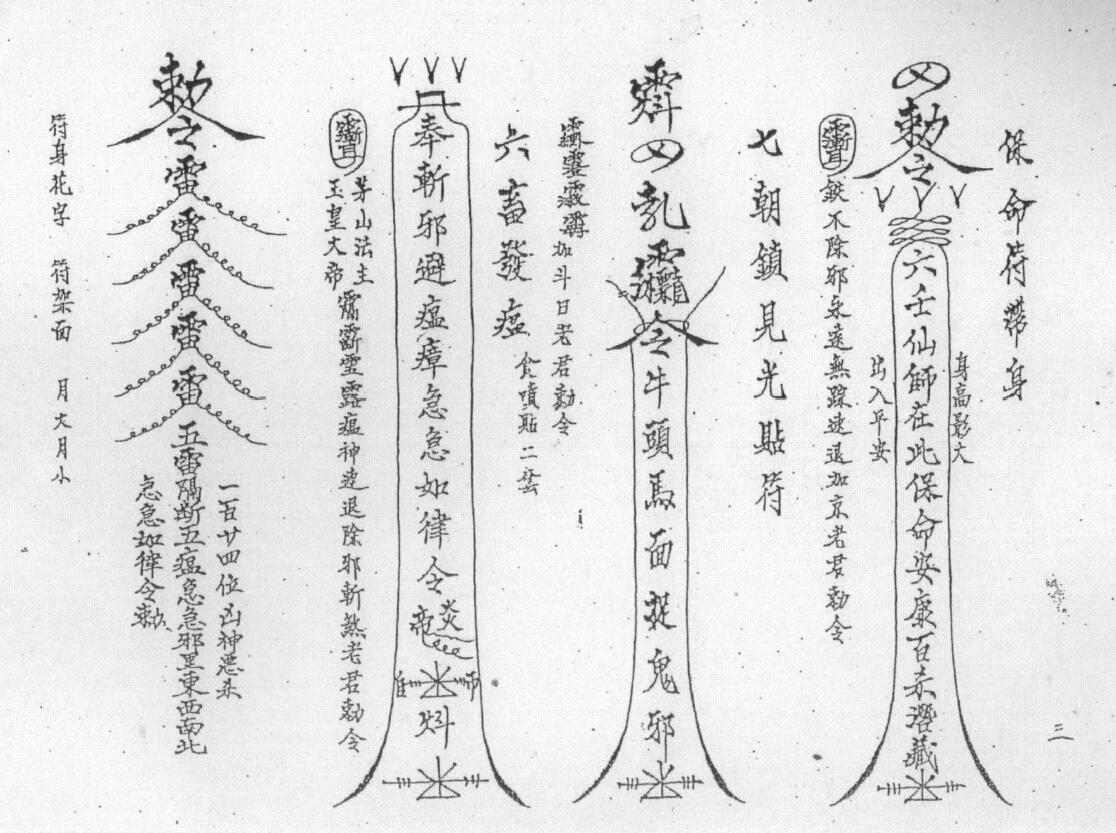 保命符帶身
勅令
六壬仙師在此保命安康百杀潛藏
身高影大
出入平安
鉄不除邪永遠無踪速退加京老君勅令
七朝鎖見光貼符
令牛頭馬面捉鬼邪
加斗日老君勅令
六畜發瘟
食噴貼二
奉斬邪避瘟瘴急急如律令
茅山法主
玉皇大帝
瘟神速退除邪斬煞老君勅令
勅令雷雷雷雷雷五雷隔断五瘟急急邪里東西南北
一百廿四位凶神悪杀
急急如律令勅
符身花字 符架面 月大月小
三